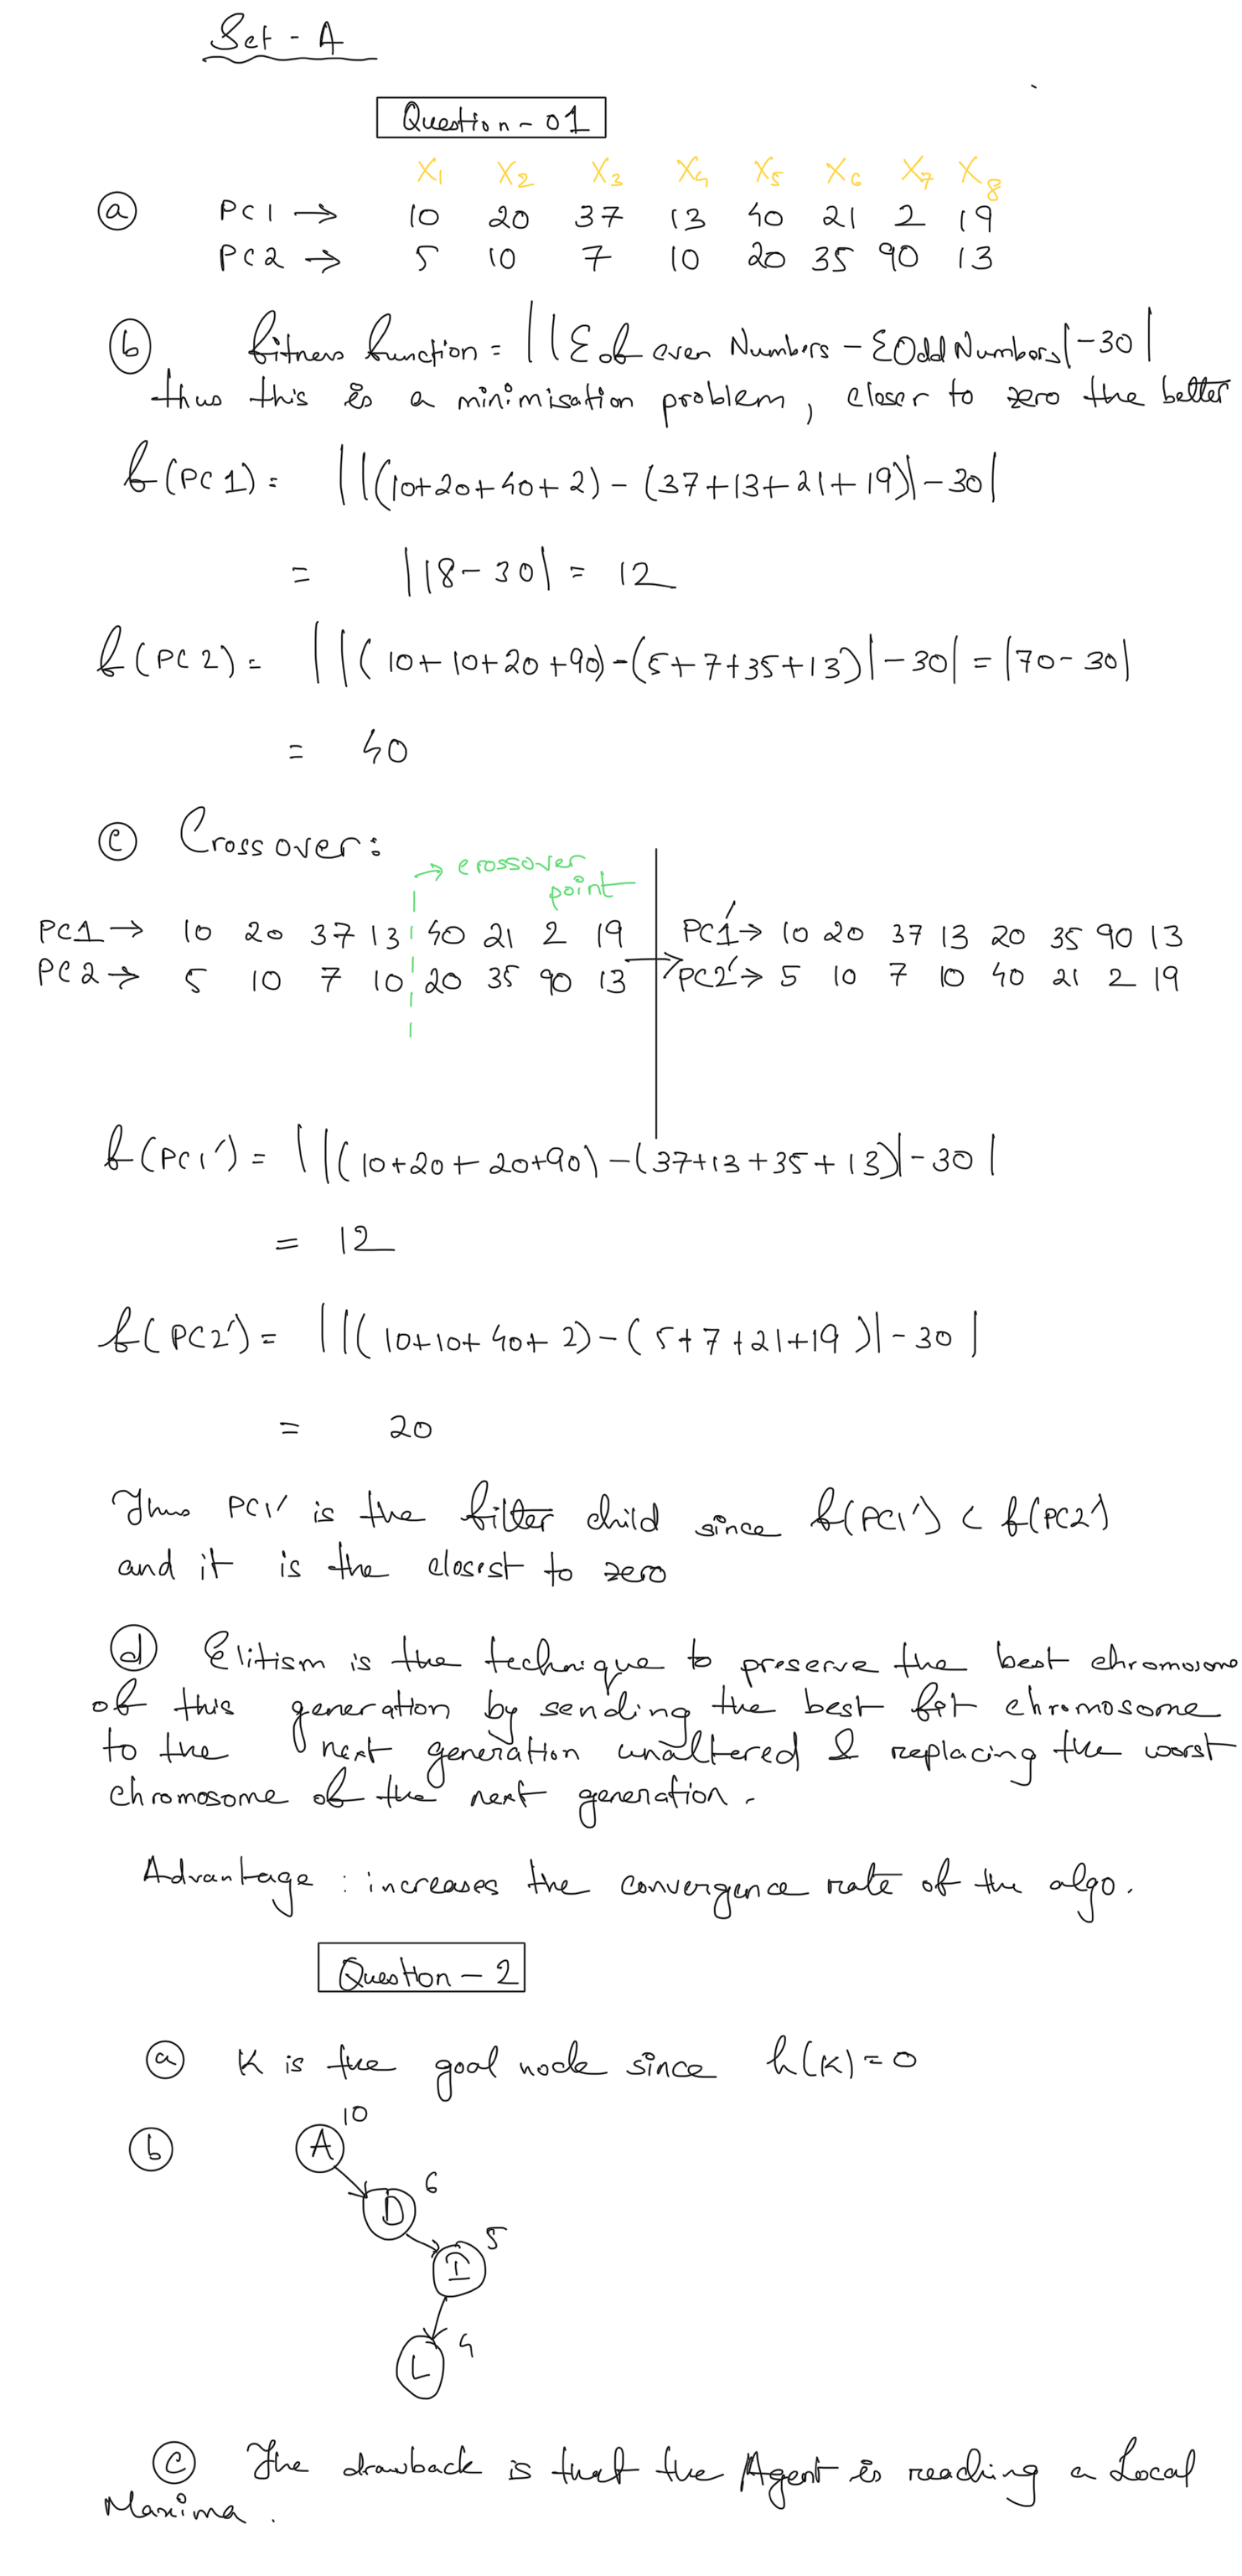 Set - A
Question - 01
X1 X2 X3 X4 X5 X6 X7 X8
(a) PC1 → 10 20 37 13 40 21 2 19
PC2 → 5 10 7 10 20 35 90 13
(b) fitness function = ||Σ of even Numbers - ΣOdd Numbers| - 30|
thus this is a minimisation problem, closer to zero the better
f(PC1) = |||(10+20+40+2) - (37+13+21+19)| - 30|
= |18 - 30| = 12
f(PC2) = |||(10+10+20+90) - (5+7+35+13)| - 30| = |70 - 30|
= 40
(c) Crossover:
→ crossover
point
PC1 → 10 20 37 13 40 21 2 19 PC1' → 10 20 37 13 20 35 90 13
PC2 → 5 10 7 10 20 35 90 13 → PC2' → 5 10 7 10 40 21 2 19
f(PC1') = |||(10+20+20+90) - (37+13+35+13)| - 30|
= 12
f(PC2') = |||(10+10+40+2) - (5+7+21+19)| - 30|
= 20
Thus PC1' is the fitter child since f(PC1') < f(PC2')
and it is the closest to zero
(d) Elitism is the technique to preserve the best chromosome
of this generation by sending the best fit chromosome
to the next generation unaltered & replacing the worst
chromosome of the next generation.
Advantage : increases the convergence rate of the algo.
Question - 2
(a) K is the goal node since h(K) = 0
10
(b) A
6
D
5
I
4
L
(c) The drawback is that the Agent is reaching a Local
Maxima.